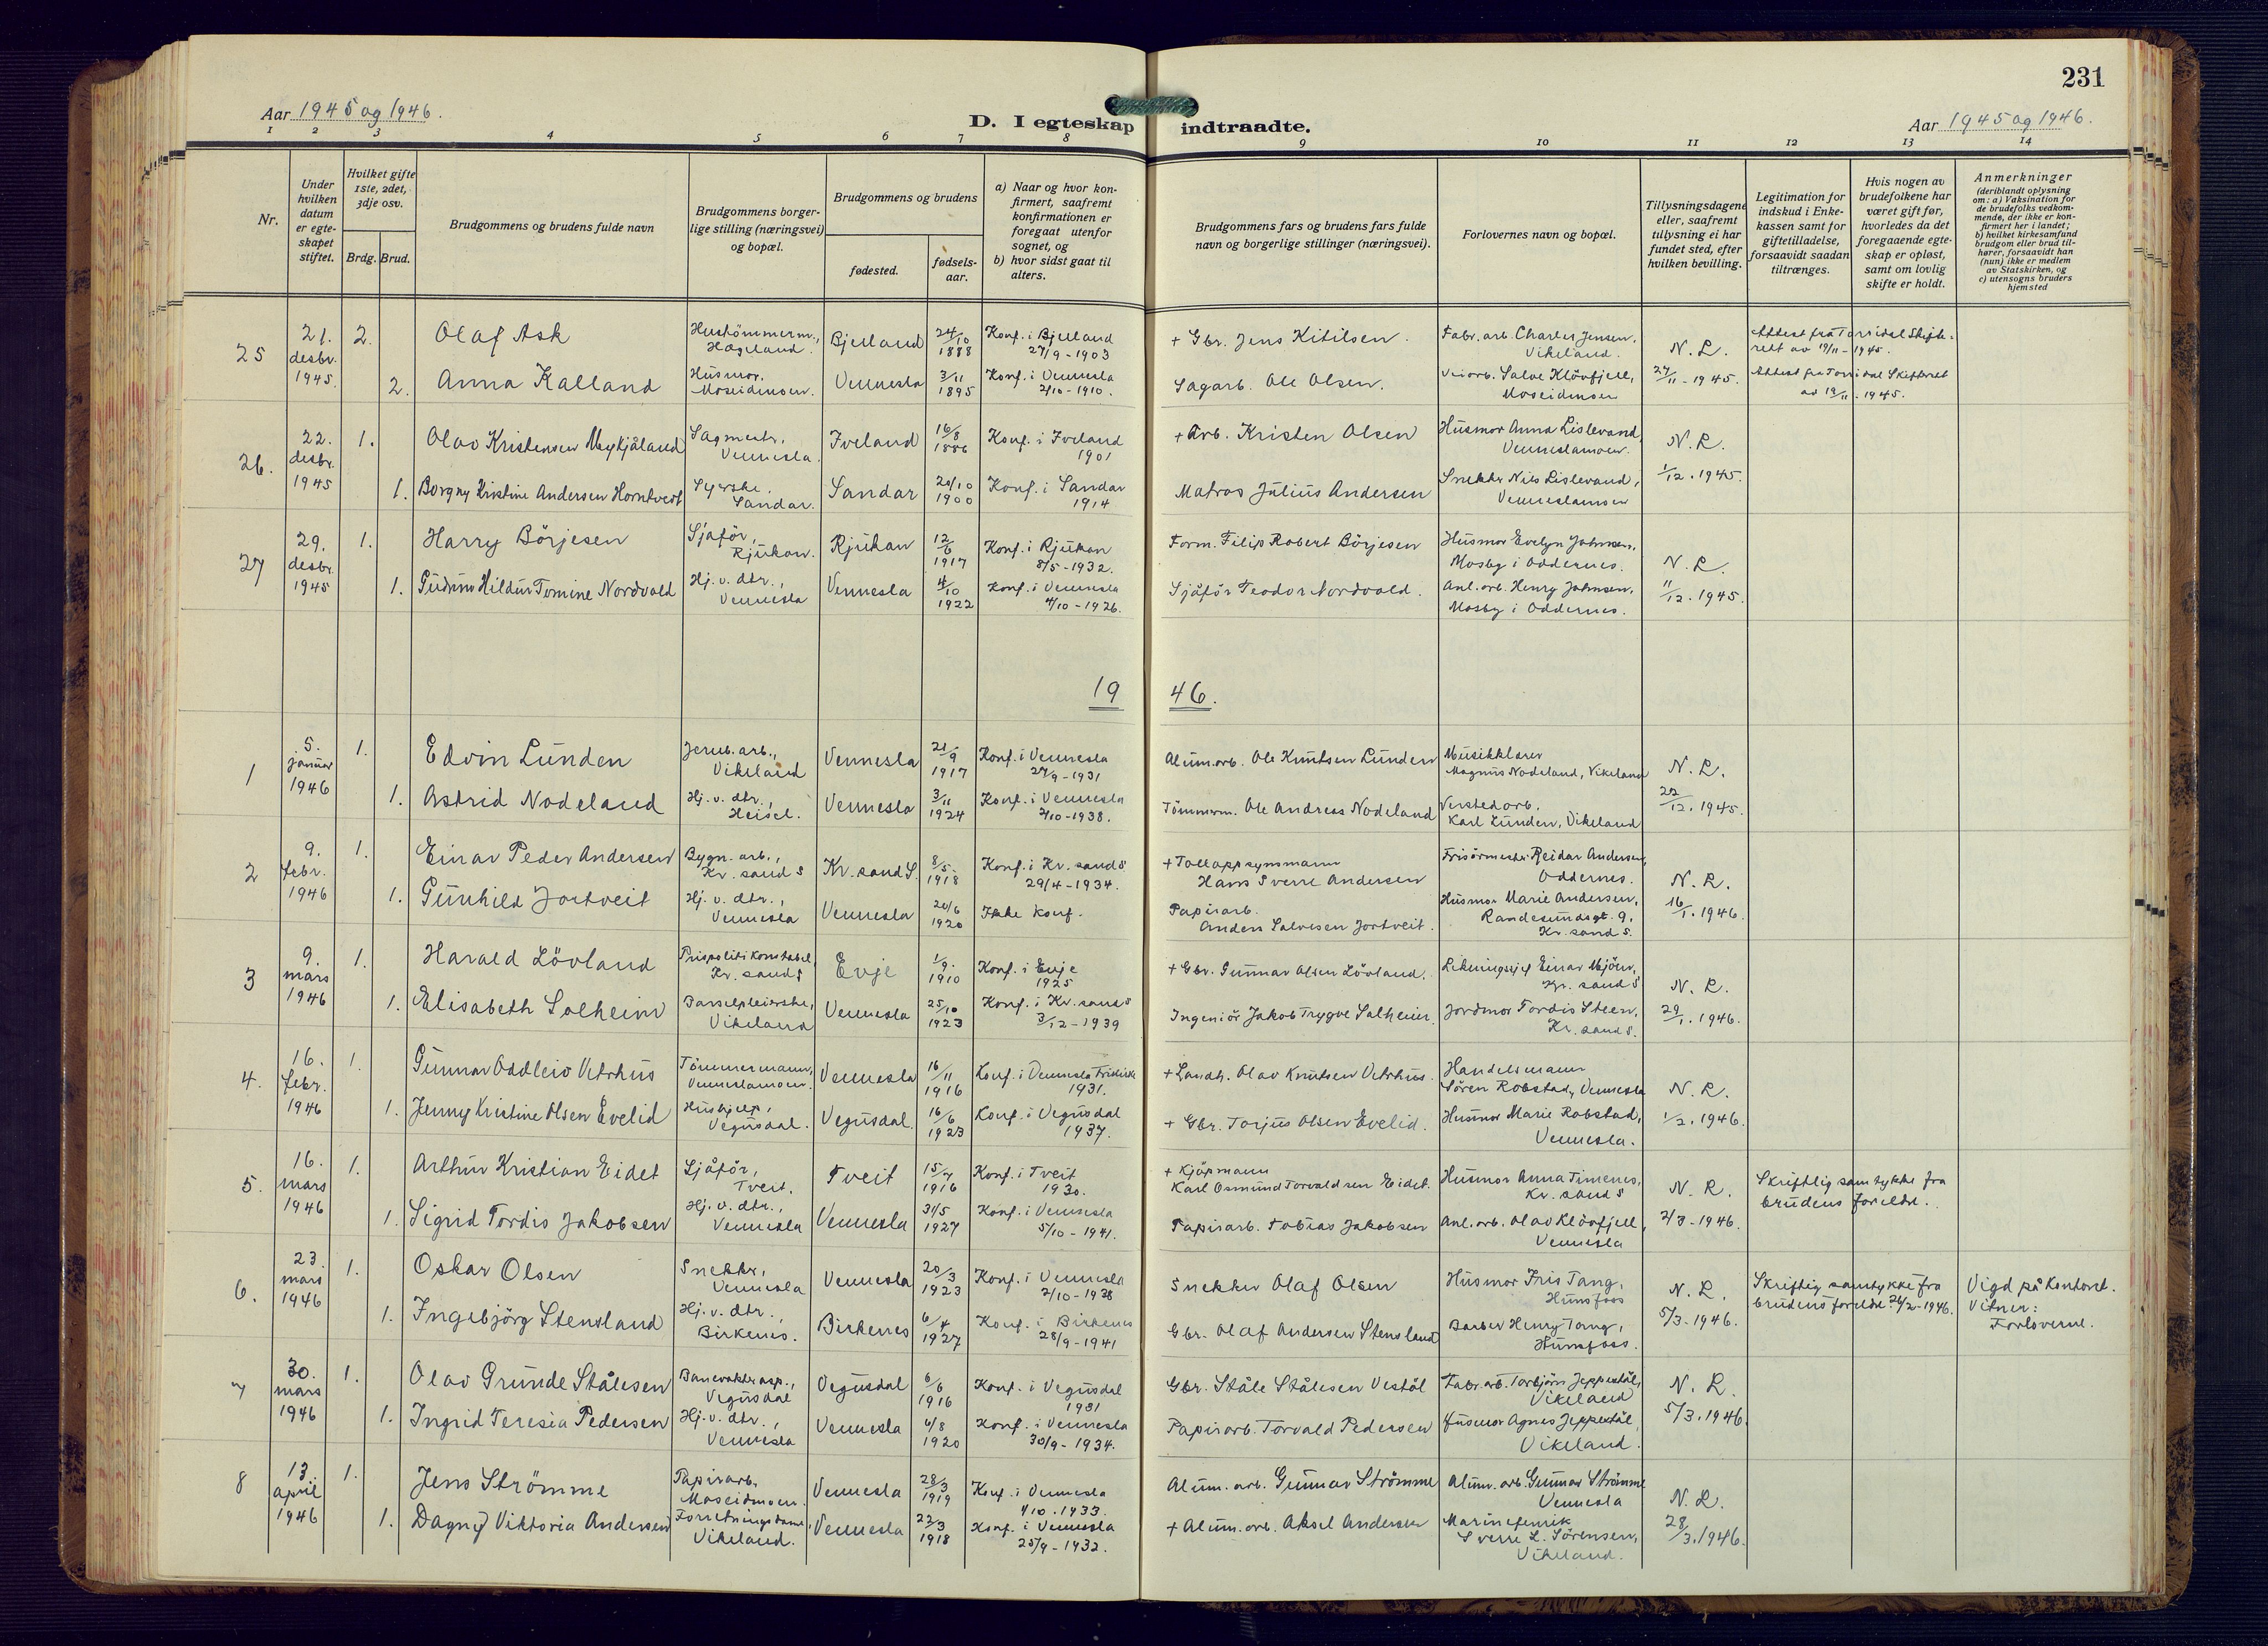 231
Aar 1945 og 1946.
D. I egteskap indtraadte.
Aar 1945 og 1946.
1 2 3 4 5 6 7 8 9 10 11 12 13 14
Nr.
Under
hvilken
datum
er egte-
skapet
stiftet.
Hvilket gifte
1ste, 2det,
3dje osv.
Brdg. Brud.
Brudgommens og brudens fulde navn
Brudgommens borger-
lige stilling (næringsvei)
og bopæl.
Brudgommens og brudens
fødested.
fødsels-
aar.
a) Naar og hvor kon-
firmert, saafremt
konfirmationen er
foregaat utenfor
sognet, og
b) hvor sidst gaat til
alters.
Brudgommens fars og brudens fars fulde
navn og borgerlige stillinger (næringsvei).
Forlovernes navn og bopæl.
Tillysningsdagene
eller, saafremt
tillysning ei har
fundet sted, efter
hvilken bevilling.
Legitimation for
indskud i Enke-
kassen samt for
giftetilladelse,
forsaavidt saadan
tiltrænges.
Hvis nogen av
brudefolkene har
været gift før,
hvorledes da det
foregaaende egte-
skap er opløst,
samt om lovlig
skifte er holdt.
Anmerkninger
(deriblandt oplysning
om: a) Vaksination for
de brudefolks vedkom-
mende, der ikke er kon-
firmert her i landet;
b) hvilket kirkesamfund
brudgom eller brud til-
hører, forsaavidt han
(hun) ikke er medlem
av Statskirken, og
c) utensogns bruders
hjemsted
25
21.
desbr.
1945.
2.
Olaf Ask
Hustömmerm.,
Hægeland.
Bjelland
24/10
1888
Konf. i Bjelland
27/9 - 1903
+ Gbr. Jens Kitilsen.
Fabr. arb. Charles Jensen.
Vikeland.
N. L.
27/11 - 1945.
Attest fra Torridal Skifte-
rett av 19/11 - 1945.
2.
Anna Kalland
Husmor.
Moseidmoen.
Vennesla
3/11
1895
Konf. i Vennesla
2/10 - 1910.
Sagarb. Ole Olsen.
Veiarb. Salve Klövfjell,
Moseidmoen
Attest fra Torridal Skifterett
av 19/11. 1945.
26.
22.
desbr.
1945
1.
Olav Kristensen Mykjåland
Sagmestr,
Vennesla.
Iveland
16/8
1886
Konf. i Iveland
1901
+ Arb. Kristen Olsen
Husmor Anna Lislevand,
Venneslamoen.
N. L.
1/12. 1945.
1.
Borgny Kristine Andersen Horntvedt
Syerske,
Sandar.
Sandar
20/10
1900
Konf. i Sandar
1914
Matros Julius Andersen
Snekker Nils Lislevand,
Venneslamoen
27
29.
desbr.
1945
1.
Harry Börjesen
Sjåför,
Rjukan.
Rjukan
12/6
1917
Konf. i Rjukan
8/5 - 1932.
Form. Filip Robert Börjesen
Husmor Evelyn Johnsen,
Mosby i Oddernes.
N. L.
11/12. 1945.
1.
Gudrun Hildur Tomine Nordvold
Hj. v. dtr.,
Vennesla
Vennesla
4/10
1922
Konf. i Vennesla
4/10 - 1926.
Sjåför Teodor Nordvold.
Anl. arb. Henry Johnsen,
Mosby i Oddernes.
19 46.
1
5.
januar
1946
1.
Edvin Lunden
Jernb. arb.,
Vikeland
Vennesla
21/9
1917
Konf. i Vennesla
27/9 - 1931
Alum. arb. Ole Knutsen Lunden
Musikklærer
Magnus Nodeland, Vikeland
N. L.
22/12. 1945.
1.
Astrid Nodeland
Hj. v. dtr.,
Heisel.
Vennesla
3/11
1924
Konf. i Vennesla
2/10 - 1938.
Tömmerm. Ole Andreas Nodeland
Verkstedarb.
Karl Lunden, Vikeland
2
9.
febr.
1946
1.
Einar Peder Andersen
Bygn. arb.,
Kr. sand S
Kr. sand S.
8/5.
1918
Konf. i Kr. sand S
29/4 - 1934.
+ Tolloppsynsmann
Hans Sverre Andersen
Frisörmester Reidar Andersen,
Oddernes.
N. L.
16/1. 1946.
1.
Gunhild Jortveit
Hj. v. dtr.,
Vennesla
Vennesla
20/6
1920
Ikke konf.
Papirarb.
Anders Salvesen Jortveit.
Husmor Marie Andersen,
Randesundsgt. 9,
Kr. sand S.
3
9.
mars
1946
1.
Harald Lövland
Prispolitikonstabel,
Kr. sand S
Evje
1/9.
1910
Konf. i Evje
1925
+ Gbr. Gunnar Olsen Lövland.
Likningssjef Einar Mjöer,
Kr. sand S
N. L.
29/1. 1946.
1.
Elisabeth Solheim
Barselpleierske,
Vikeland
Vennesla
25/10
1923
Konf. i Kr. sand S
3/12 - 1939
Ingeniör Jakob Trygve Solheim.
Jordmor Tordis Steen,
Kr. sand S.
4.
16.
febr.
1946
1.
Gunnar Oddleiv Vetrhus
Tömmermann,
Vennslamoen.
Vennesla
16/11
1916
Konf. i Vennesla Frikirke
1931.
+ Landh. Olav Knutsen Vetrhus.
Handelsmann
Sören Robstad, Vennesla
N. L.
1/2. 1946.
1.
Jenny Kristine Olsen Evelid
Hushjelp,
Vegusdal.
Vegusdal.
16/6
1923
Konf. i Vegusdal
1937.
+ Gbr. Torjus Olsen Evelid.
Husmor Marie Robstad,
Vennesla.
5.
16.
mars
1946
1.
Arthur Kristian Eidet
Sjåför,
Tveit.
Tveit
15/7
1916
Konf. i Tveit
1930.
+ Kjöpmann
Karl Osmund Torvaldsen Eidet.
Husmor Anna Timenes,
Kr. sand S
N. L.
2/3 - 1946.
Skriftlig samtykke fra
brudens foreldre.
1.
Sigrid Tordis Jakobsen
Hj. v. dtr.,
Vennesla
Vennesla
31/5
1927
Konf. i Vennesla
5/10 - 1941.
Papirarb. Tobias Jakobsen
Anl. arb. Olav Klövfjell,
Vennesla
6.
23.
mars
1946
1.
Oskar Olsen
Snekker,
Vennesla
Vennesla
20/3
1923
Konf. i Vennesla
2/10 - 1938
Snekker Olaf Olsen
Husmor Iris Tang,
Hunsfoss
N. L.
5/3 - 1946.
Skriftlig samtykke fra
brudens foreldre 26/2 - 1946.
Vigd på kontoret.
Vitner:
Forloverne.
1.
Ingebjörg Stensland
Hj. v. dtr.,
Birkenes.
Birkenes
6/4
1927
Konf. i Birkenes
28/9 - 1941
Gbr. Olaf Andersen Stensland
Barber Henry Tang,
Hunsfoss.
7
30.
mars
1946
1.
Olav Grunde Stålesen
Banevokterasp.,
Vegusdal
Vegusdal
6/6
1916
Konf. i Vegusdal
1931
Gbr. Ståle Stålesen Vestöl
Fabr. arb. Torbjörn Jeppestöl,
Vikeland
N. L.
5/3. 1946.
1.
Ingrid Teresia Pedersen
Hj. v. dtr.,
Vennesla
Vennesla
4/8
1920
Konf. i Vennesla
30/9 - 1934.
Papirarb. Torvald Pedersen
Husmor Agnes Jeppestöl,
Vikeland.
8
13.
april
1946
1.
Jens Strömme
Papirarb.
Moseidmoen.
Vennesla
28/3
1919
Konf. i Vennesla
1/10. 1933.
Alum. arb. Gunnar Strömme
Alum. arb. Gunnar Strömme
Vennesla
N. L.
28/3. 1946.
1.
Dagny Viktoria Andersen
Forretningsdame,
Vikeland.
Vennesla
22/3
1918
Konf. i Vennesla
25/9 - 1932.
+ Alum. arb. Aksel Andersen
Marinefenrik
Sverre L. Sörensen,
Vikeland.